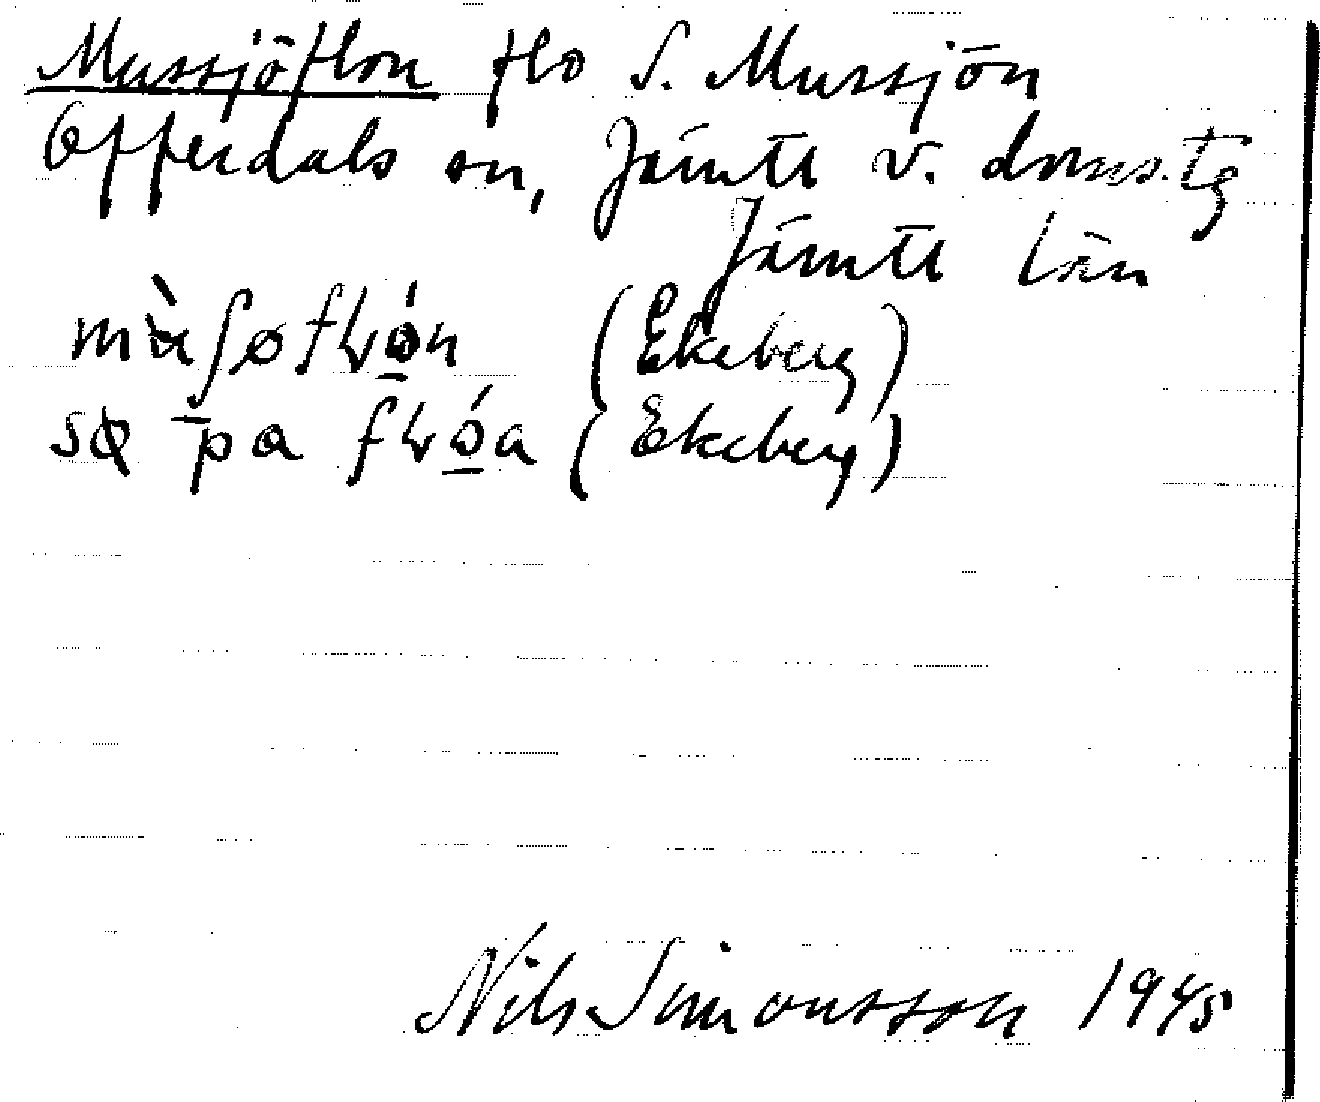 Mussjöflon flo S. Mussjön
Offerdals sn, Jämtl v. doms.tg
Jämtl län
(Ekeberg)
(Ekeberg)
Nils Simonsson 1945